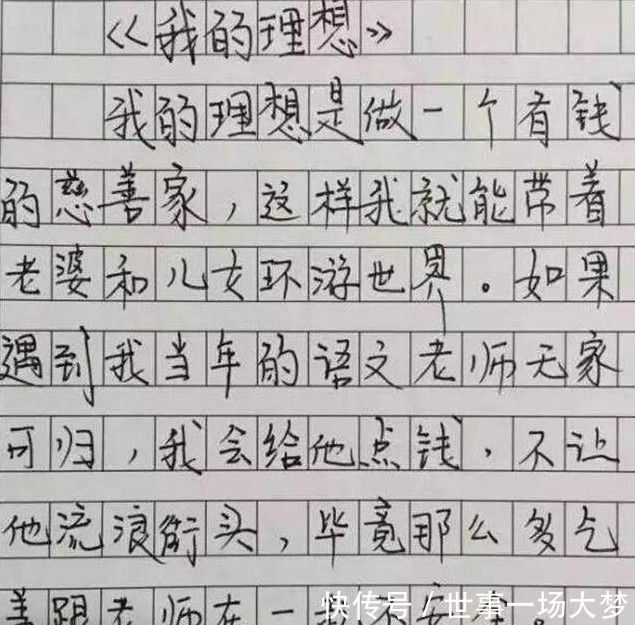 《我的理想》
我的理想是做一个有钱
的慈善家，这样我就能带着
老婆和儿女环游世界。如果
遇到我当年的语文老师无家
可归，我会给他点钱，不让
他流浪街头，毕竟那么多乞
跟老师在一
快传号/世事一场大梦